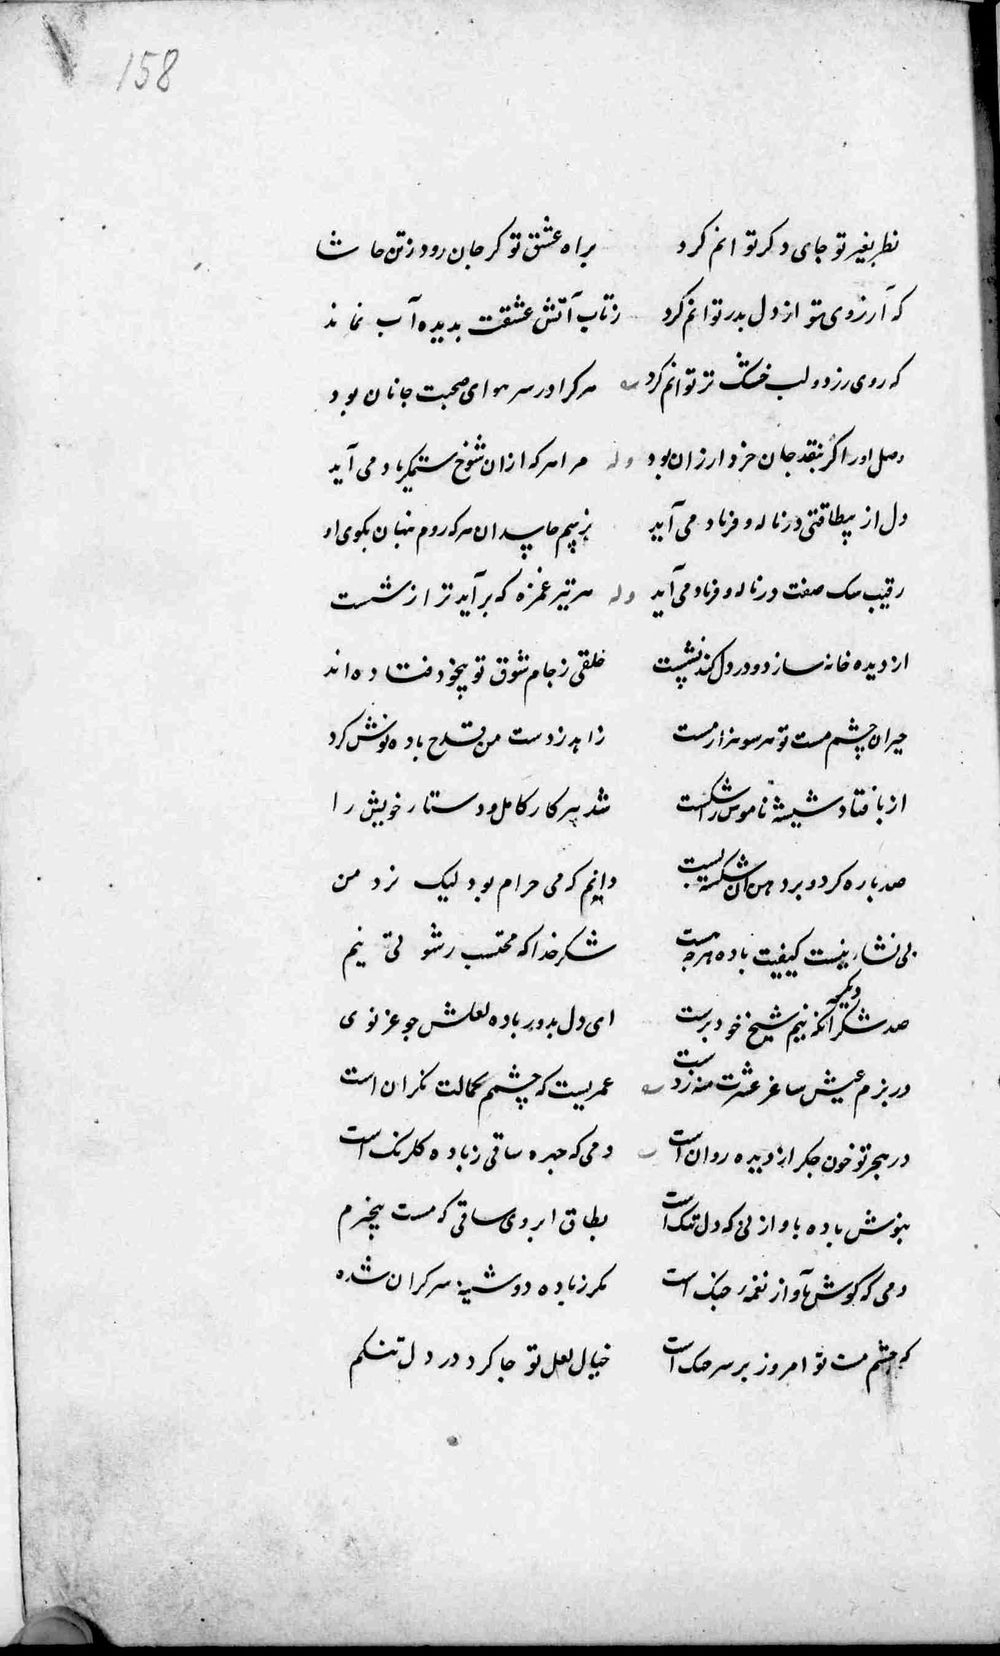 158
نظر بغیر تو جای دکر توانم کرد براه عشق تو کر جان رود ز تن حاشا
که آرزوی تو از دل بدر توانم کرد ز تاب آتش عشقت بدیده آب نماند
که روی زرد و لب خشک تر توانم کرد هر کرا در سر هوای صحبت جانان بود
وصل او را کر بنقد جان خرد ارزان بود وله مرا هر که ازان شوخ ستمکر یاد می آید
دل از بیطاقتی در ناله و فریاد می آید ز بیم پاسبدان هر که روم پنهان بکوی او
رقیب سک صفت در ناله و فریاد می آید وله هر تیر غمزه که برآید ترا ز شست
از دیده خانه سازد و در دل کند نشست خلقی ز جام شوق تو بیخود فتاده اند
حیران چشم مست تو هر سو هزار مست زاهد ز دست من قدح باده نوش کرد
از پا فتاد شیشه ناموس را شکست شد پیر کار کامل و دستار خویش را
صد باره کرد و برد همن آن شکسته بست دانم که می حرام بود لیک نزد من
بی نشاء نیست کیفیت باده هر چه هست شکر خدا که محتسب رشوتی نیم
صد شکر دیکر آنکه نیم شیخ خودپرست ای دل بدور باده لعلش چو غزنوی
در بزم عیش ساغر عشرت منه ز دست عمریست که چشمم بجمالت نکران است
در هجر تو خون جکر از دیده روان است دمی که چهره ساقی ز باده کلرنک است
بنوش باده باواز نی که دل تنک است بطاق ابروی ساقی که مست بیخبرم
دمی که کوش بآواز نغمه چنک است مکر ز باده دوشینه سرکران شده
که چشم مست تو امروز بر سر جنک است خیال لعل تو جا کرد در دل تنکم